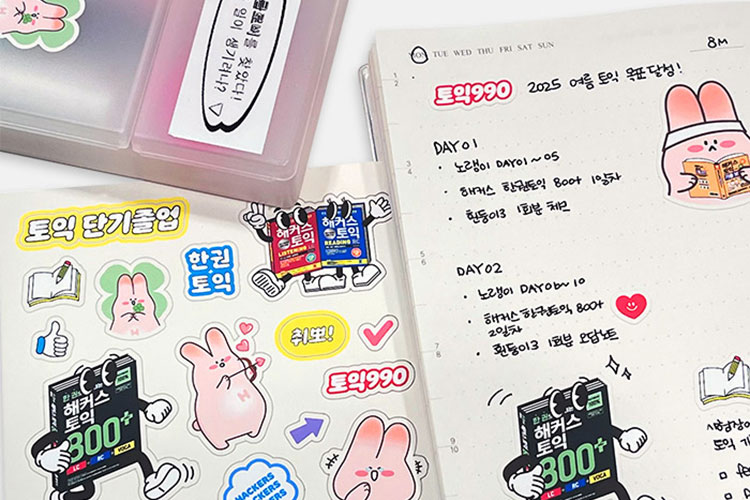 를 찾았다!
일이 생기려나?
MON TUE WED THU FRI SAT SUN
8M
토익990
2025 여름 토익 목표달성!
DAY 01
노랭이 DAY01~05
해커스 한권토익 800+ 1일차
흰둥이3 1회분 체련
DAY 02
노랭이 DAY06~10
해커스 한권토익 800+
2일차
흰둥이3 1회분 오답노트
해커스
토익 단기졸업
한권
토익
해커스
토익
LISTENING
해커스
토익
READING
취뽀!
토익990
해커스
토익
800+
LC
RC
VOCA
HACKERS
해커스
토익
800+
LC
RC
VOCA
시험장
토익